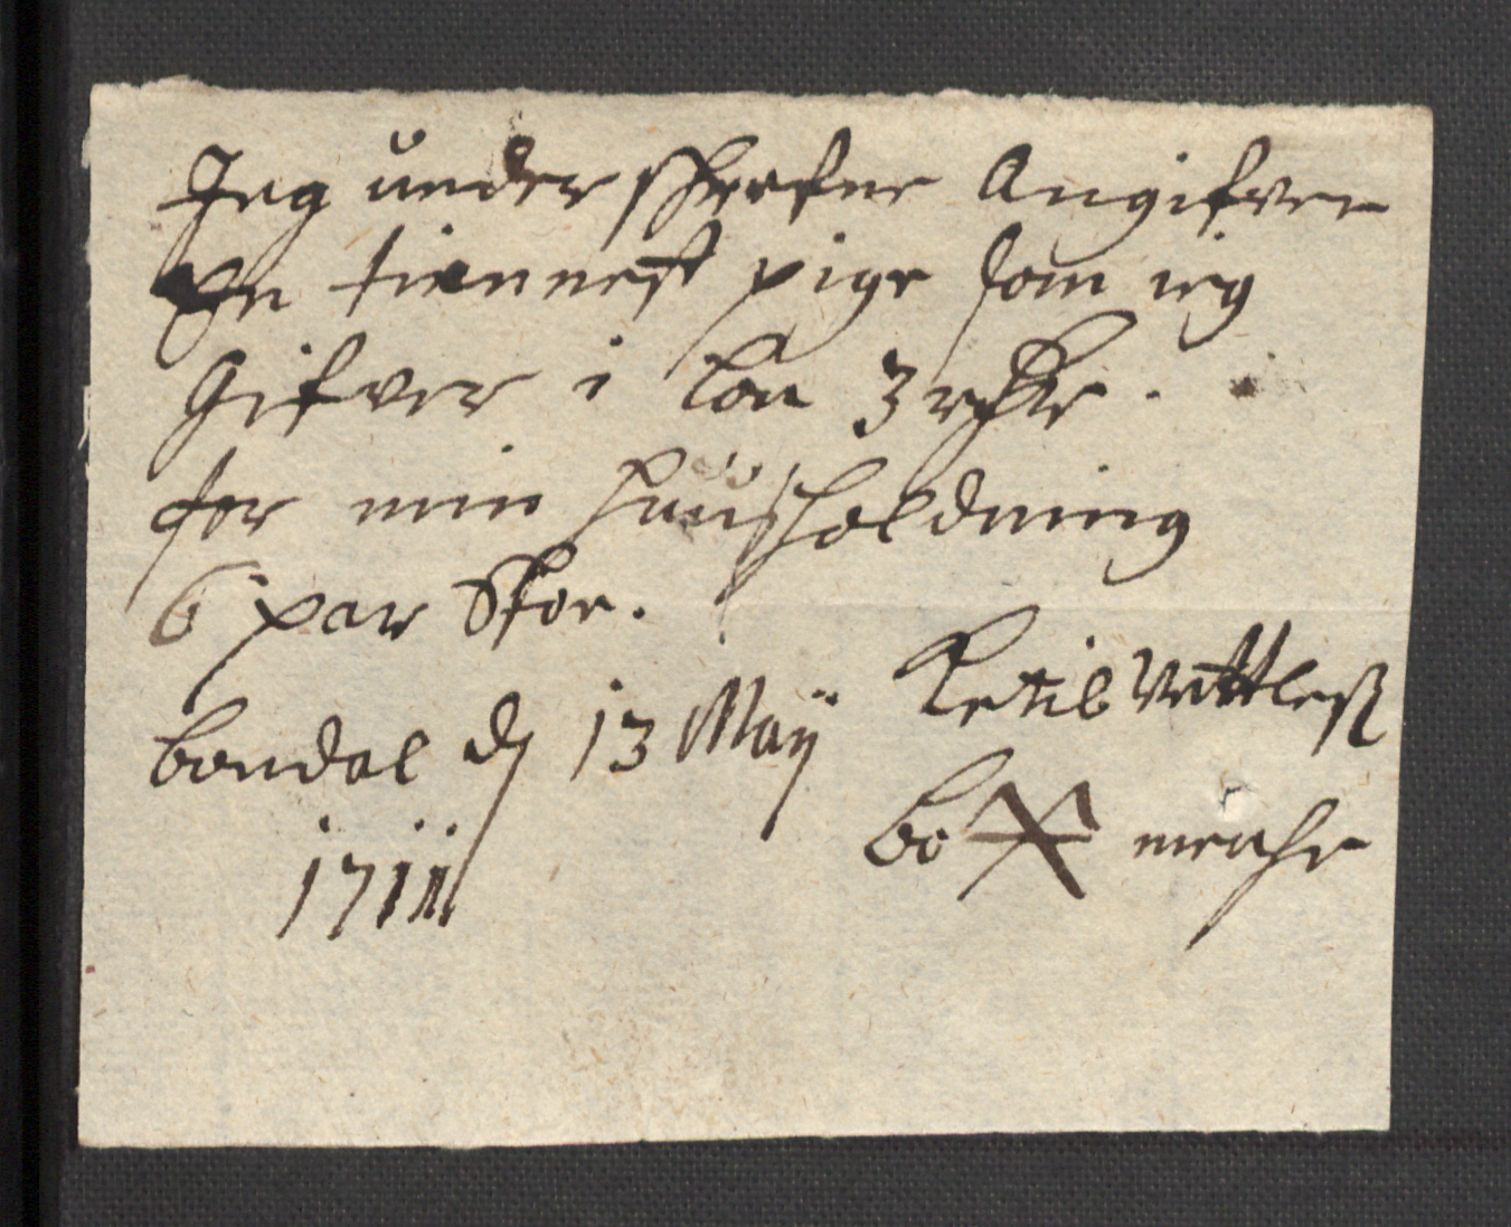 Jeg underskrefne Angifver
En tiennest pige som ieg
Gifver i lön 3 rdlr.
for min huusholdning
6 par Skoe.
bondal d 13 Maÿ
1711
Ketil
bo merche